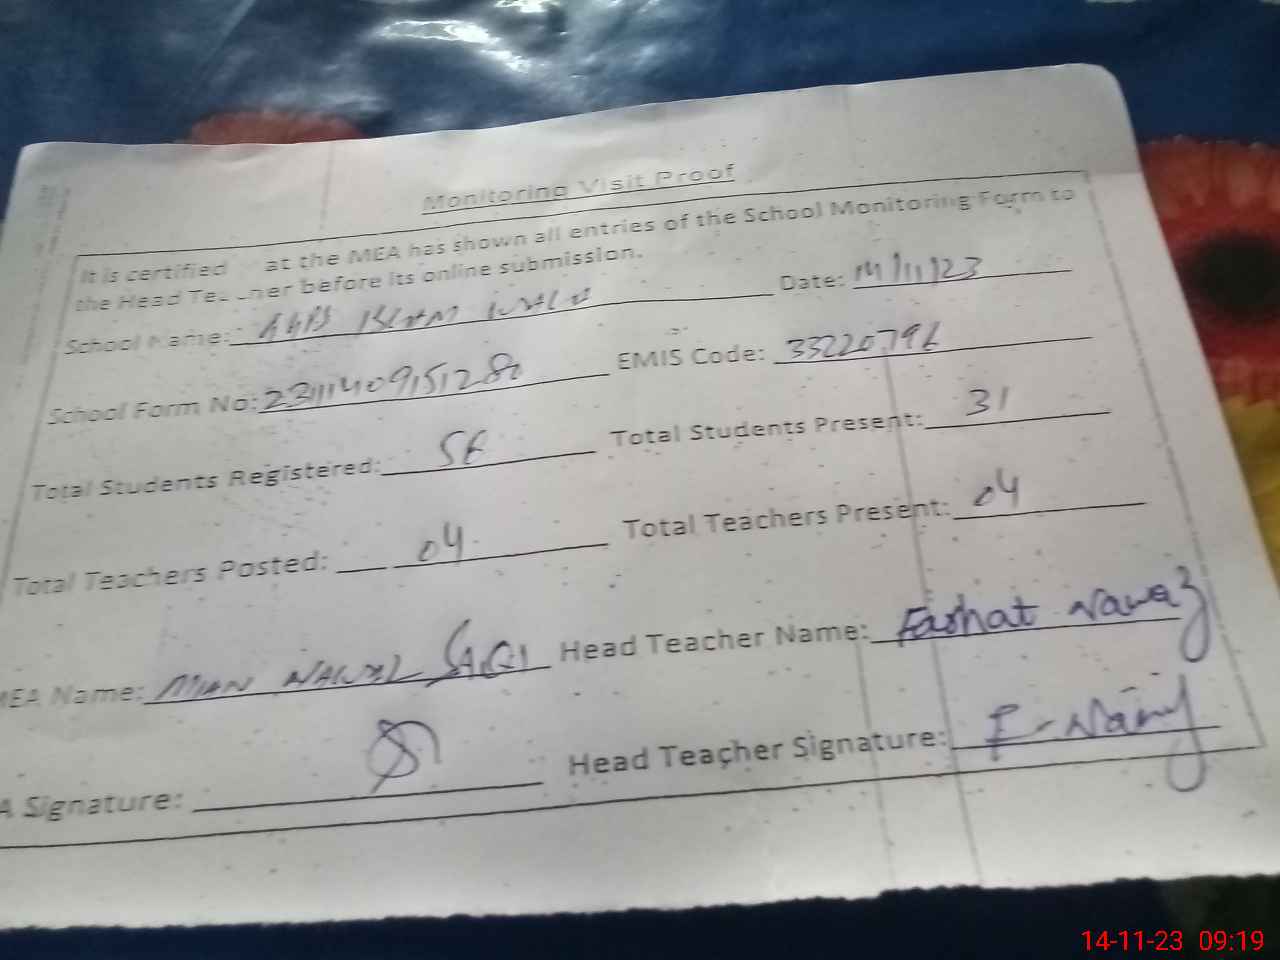 Monitoring Visit Proof
It is certified at the MEA has shown all entries of the School Monitoring Form to
the Head Te ner before its online submission.
School Name: Date: 14/11/23
School Form No: 231114091512 EMIS Code: 33220796
Total Students Registered: Total Students Present: 31
Total Teachers Posted: 04 Total Teachers Present: 04
MEA Name: MIAN NAWAZ SAQI Head Teacher Name: Farhat Nawaz
A Signature: Head Teacher Signature: F-Nawaz
14-11-23 09:19